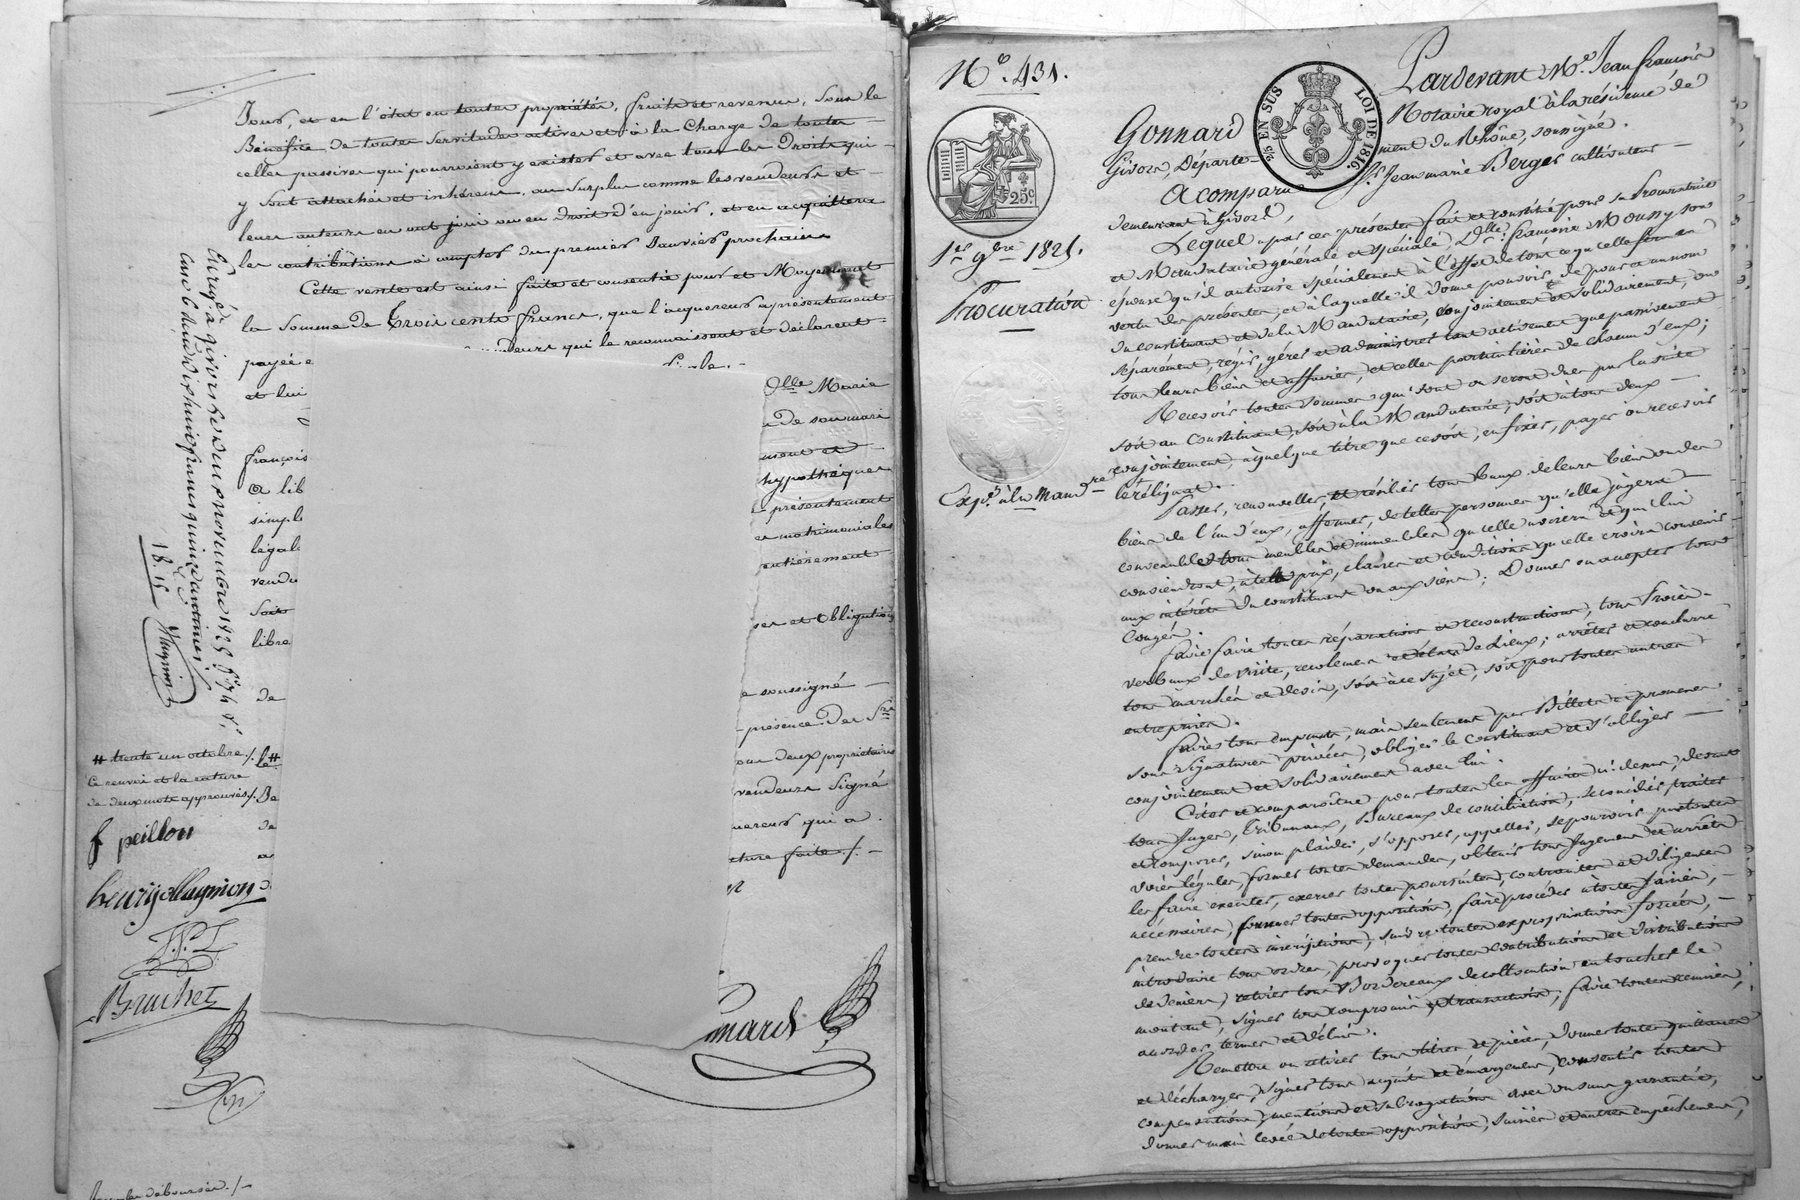 Jours, et en l'état en toutes propriétés, fruits et revenus, Sous le
Bénéfice de toutes Servitudes actives et à la Charge de toutes
celles passives qui pourroient y exister et avec tous les Droits qui
y sont attachés et inhérens, au Surplus comme les vendeurs et
leurs auteurs en ont joui ou eu Droit d'en jouir, et en acquittera
les contributions à compter du premier Janvier prochain
Cette vente est ainsi faite et consentie pour et Moyennant
la Somme de Trois cents francs, que l'acquereur a présentement
payée deurs qui le reconnaissent et déclarent
et lui
Dlle Marie
de son mari
françois
a lib hypothèques
simple présentement
légale matrimoniales
vendu entièrement
Soit
libre et obligation
de soussigné
présence de Srs
tous deux propriétaires
vendeurs Signé
quereur qui a
cture faite ./.
1815
# trente un octobre ./.
Ce renvoi et la rature
de deux mots approuvés ./.
f peillon
henry Magnion
Bruchet
nnard
déboursés ./.
N.° 431.
25c
1er 9bre 1825.
Procuration
Expn à la Mandre
2/5 EN SUS
LOI DE 1816.
Pardevant Me. Jean françois
Gonnard Notaire royal à la résidence de
Givors, Département du Rhône, soussigné.
A comparu Sr. Jean marie Berger cultivateur
demeurant à Givors,
Lequel a par ces présentes fait et constitué pour sa Procuratrice
et Mandataire générale et spéciale, Dlle. françoise Moussy son
épouse qu'il autorise spécialement à l'effet de tout ce qu'elle fera en
vertu des présentes, et à laquelle il donne pouvoir de pour et au nom
du constituant et de la Mandataire, conjointement et solidairement, ou
séparément, régir, gérer et administrer tant activement que passivement
tous leurs biens et affaires, et celles particulières de chacun d'eux;
Recevoir toutes sommes qui sont ou seront dues par la suite
soit au Constituant, soit à la Mandataire, soit à tous deux
conjointement, à quelque titre que ce soit, en fixer, payer ou recevoir
le reliquat.
Passer, renouveller et résilier tous baux de leurs biens ou des
biens de l'un d'eux, affermer, à telles personnes qu'elle jugera
convenables tous meubles et immeubles qu'elle avisera et qui lui
conviendront, à tels prix, clauses et conditions qu'elle croira convenir
aux intérêts du constituant ou aux siens; Donner ou accepter tous
Congés.
faire faire toutes réparations et reconstructions, tous Procès-
verbaux de visite, recolement et états de Lieux; arrêter et conclure
tous marchés et devis, soit à ce sujet, soit pour toutes autres
entreprises.
faire tous emprunts, mais seulement par Billets et promesses
sous Signatures privées, obliger le constituant et s'obliger
conjointement et solidairement avec lui.
Citer et comparaître pour toutes les affaires ci-dessus, devant
tous Juges, Tribunaux, Bureaux de conciliation, se concilier, traiter
et composer, sinon plaider, s'opposer, appeller, se pourvoir par toutes
voies légales, former toutes demandes, obtenir tous Jugemens et arrêts
les faire exécuter, exercer toutes poursuites, contraintes et diligences
nécessaires, former toutes oppositions, faire procéder à toutes saisies,
prendre toutes inscriptions, suivre toutes expropriations forcées,
introduire tous ordres, provoquer toutes Contributions et distributions
de deniers, retirer tous Bordereaux de collocation, en toucher le
montant, signer tous compromis et transactions, faire toutes remises,
accorder termes et délais.
Remettre ou retirer tous titres et pièces, donner toutes quittances
et décharges, signer tous acquits et émargemens, consentir toutes
compensations, mentions et subrogations avec ou sans garantie,
donner main levée de toutes oppositions, saisies et autres empêchemens,